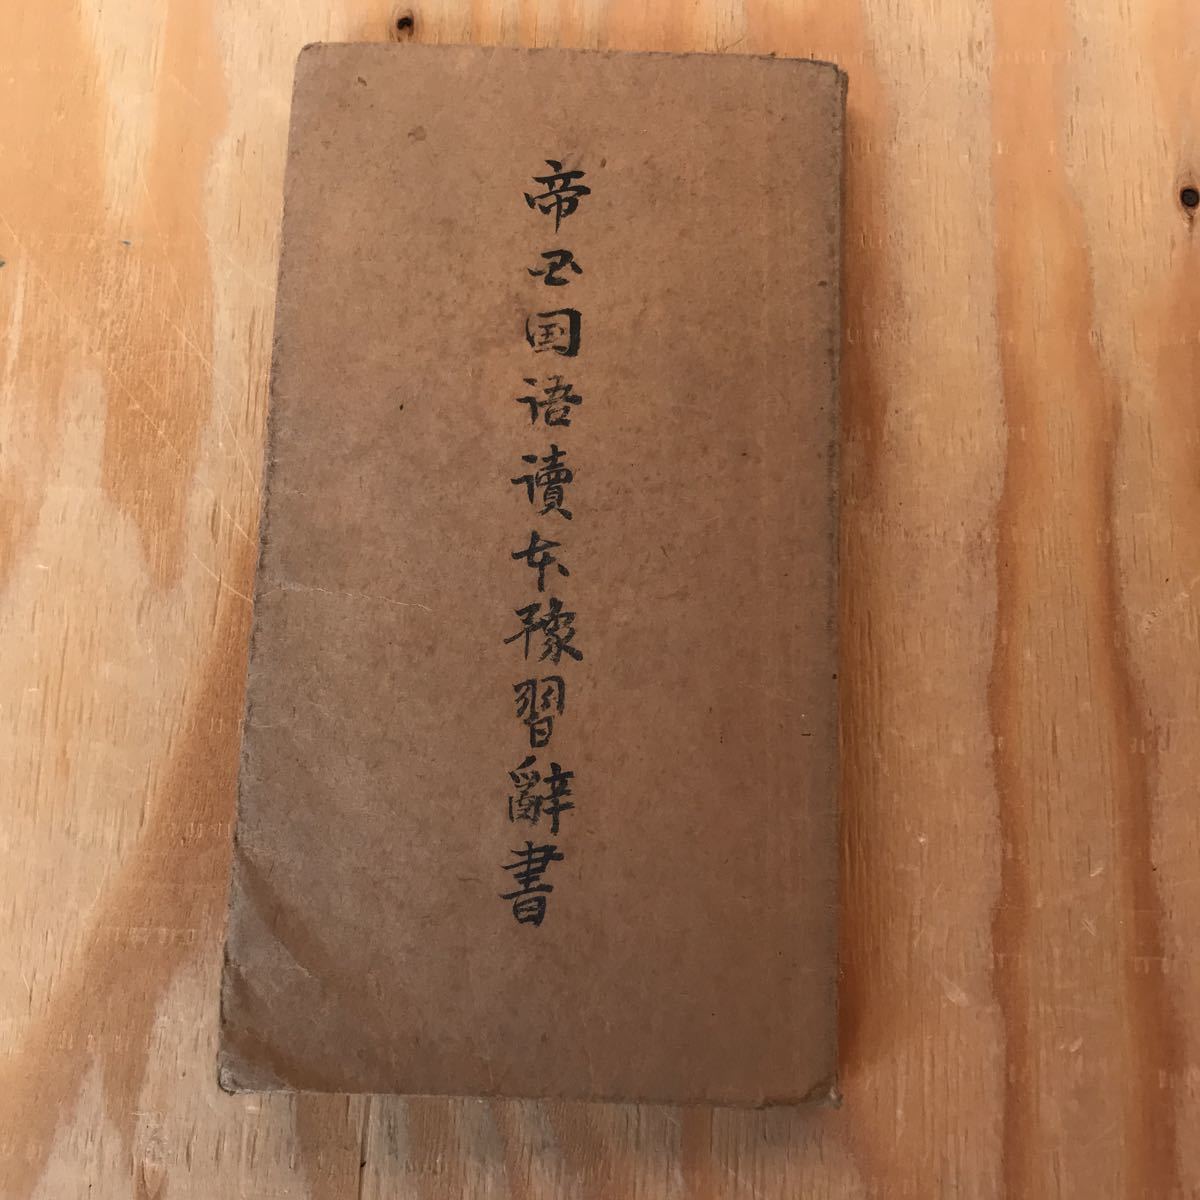 帝国国语讀本豫習辭書